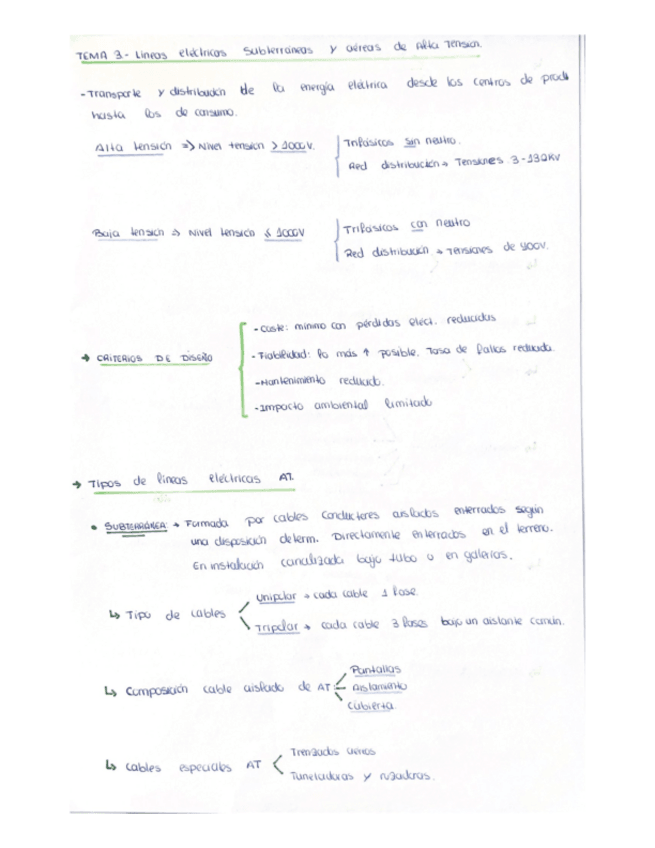 TEMA 3.- Líneas eléctricas Subterráneas y aéreas de Alta Tensión.
- Transporte y distribución de la energía eléctrica desde los centros de prod
hasta los de consumo.
Alta tensión => Nivel tensión > 1000V.
Trifásicos sin neutro.
Red distribución → Tensiones 3-132KV
Baja tensión => Nivel tensión ≤ 1000V
Trifásicos con neutro
Red distribución → Tensiones de 400V.
→ CRITERIOS DE DISEÑO
- Coste: mínimo con pérdidas eléct. reducidas
- Fiabilidad: lo más ↑ posible. Tasa de fallos reducida.
- Mantenimiento reducido.
- Impacto ambiental limitado
→ Tipos de líneas eléctricas AT.
• SUBTERRÁNEA → Formada por cables conductores aislados enterrados según
una disposición determ. Directamente enterrados en el terreno.
En instalación canalizada bajo tubo o en galerías.
↳ Tipo de cables
Unipolar → cada cable 1 fase.
Tripolar → cada cable 3 fases bajo un aislante común.
↳ Composición cable aislado de AT:
Pantallas
Aislamiento
Cubierta
↳ Cables especiales AT
Trenzados aéreos
Tuneladoras y rozadoras.